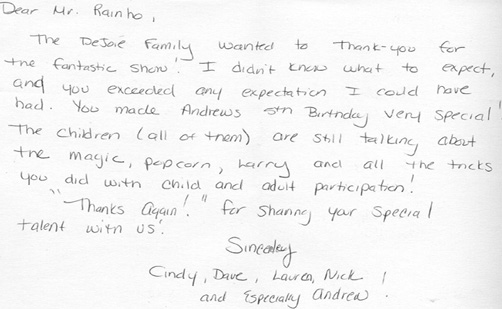 Dear Mr. Rainho,
The DeJoie Family wanted to Thank-you for
the fantastic show! I didn't know what to expect,
and you exceeded any expectation I could have
had. You made Andrews 5th Birthday very special!
The children (all of them) are still talking about
the magic, popcorn, Larry and all the tricks
you did with child and adult participation!
"Thanks Again!" for sharing your special
talent with us!
Sincerley
Cindy, Dave, Lauren, Nick !
and Especially Andrew.